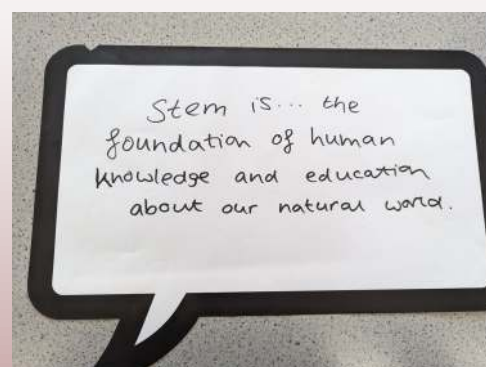 Stem is... the
foundation of human
knowledge and education
about our natural world.